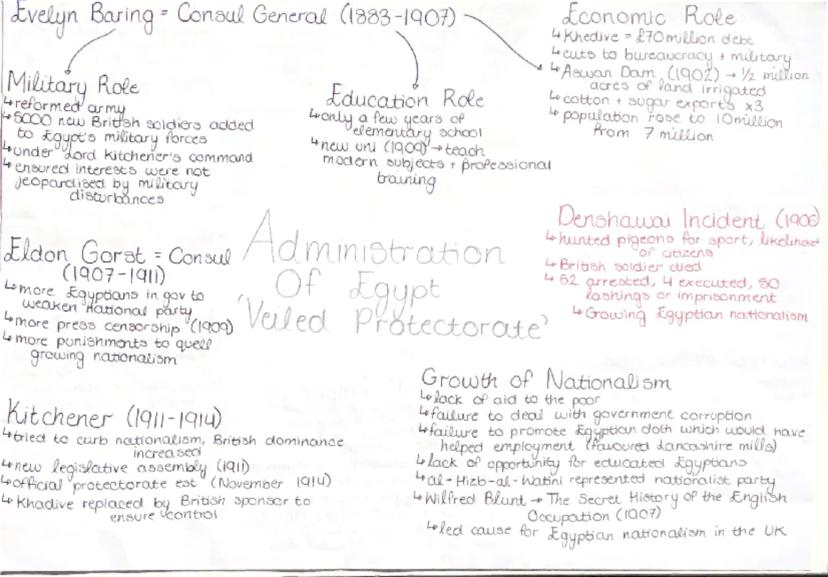 Evelyn Baring = Consul General (1883-1907)
Military Role
↳ reformed army
↳ 5000 new British soldiers added
to Egypt's military forces
↳ under Lord Kitchener's command
↳ ensured interests were not
jeopardised by military
disturbances
Education Role
↳ only a few years of
elementary school
↳ new uni (1909) → teach
modern subjects + professional
training
Economic Role
↳ Khedive = £70million debt
↳ cuts to bureaucracy + military
↳ Aswan Dam (1902) → ½ million
acres of land irrigated
↳ cotton + sugar exports x3
↳ population rose to 10million
from 7 million
Administration
Of Egypt
'Veiled Protectorate'
Denshawai Incident (1906)
↳ hunted pigeons for sport, likelihood
of citizens
↳ British soldier died
↳ 52 arrested, 4 executed, 50
lashings or imprisonment
↳ Growing Egyptian nationalism
Eldon Gorst = Consul
(1907-1911)
↳ more Egyptians in gov to
weaken National party
↳ more press censorship (1909)
↳ more punishments to quell
growing nationalism
Kitchener (1911-1914)
↳ tried to curb nationalism, British dominance
increased
↳ new legislative assembly (1911)
↳ official protectorate est (November 1914)
↳ Khadive replaced by British sponsor to
ensure control
Growth of Nationalism
↳ lack of aid to the poor
↳ failure to deal with government corruption
↳ failure to promote Egyptian cloth which would have
helped employment (favoured Lancashire mills)
↳ lack of opportunity for educated Egyptians
↳ al-Hizb-al-Watini represented nationalist party
↳ Wilfred Blunt → The Secret History of the English
Occupation (1907)
↳ led cause for Egyptian nationalism in the UK